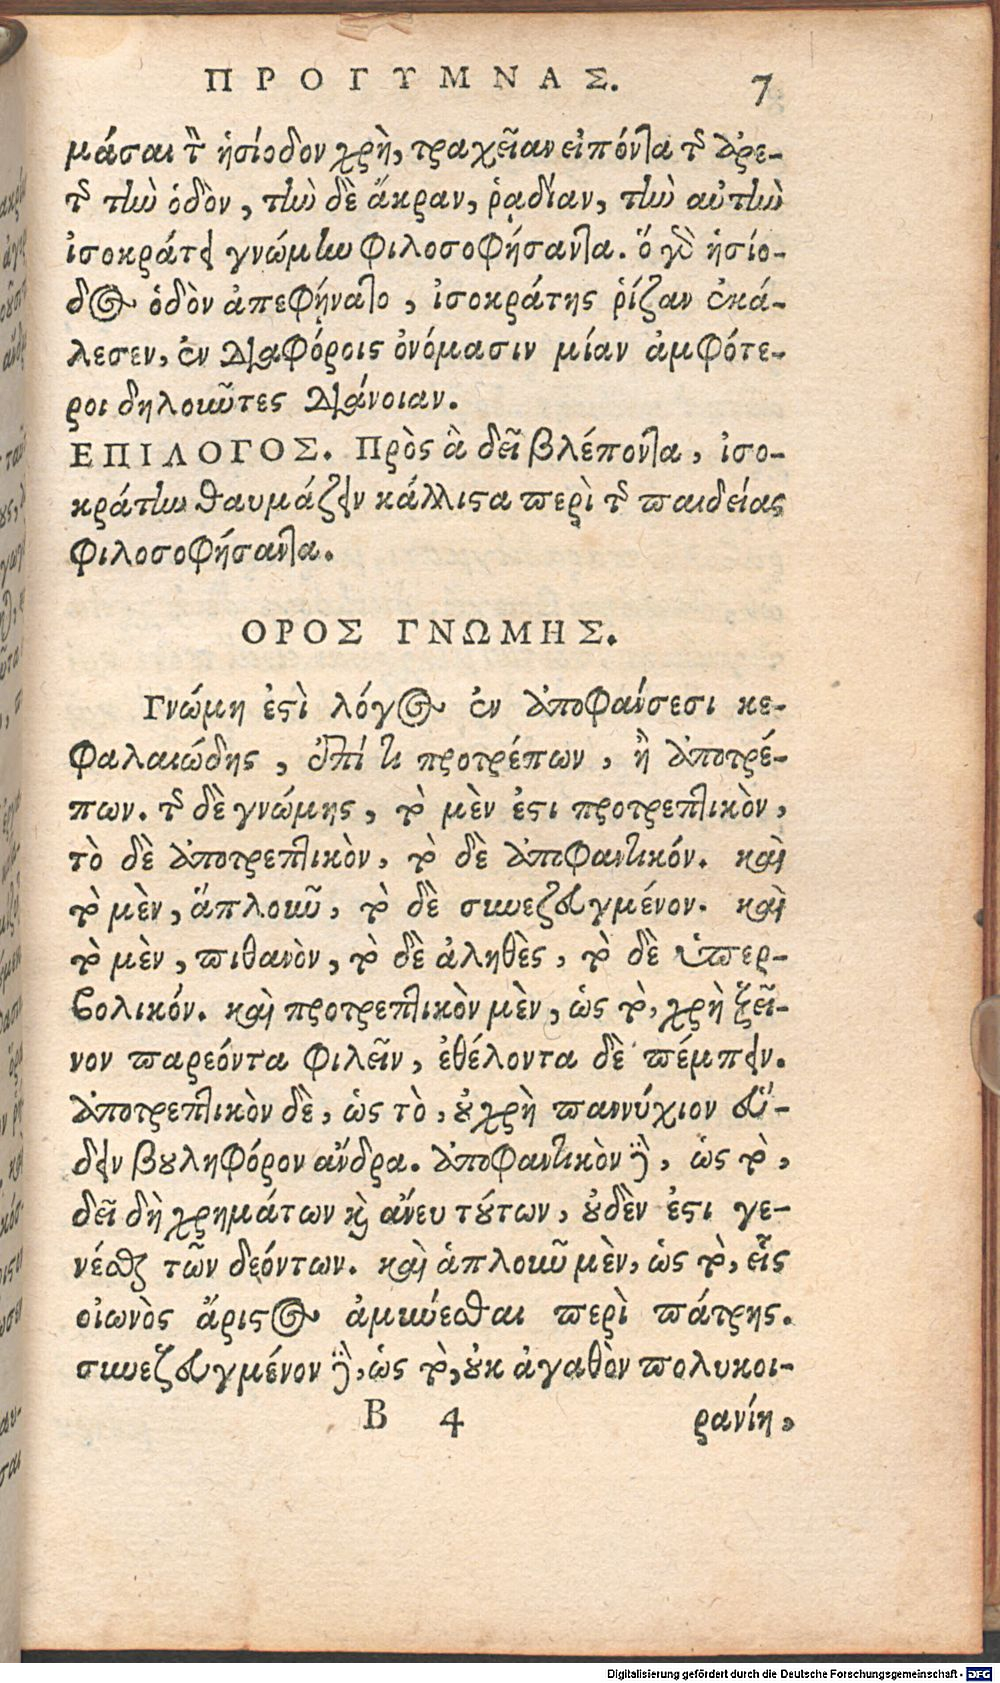 ΠΡΟΓΥΜΝΑΣ. 7
μάσαι τὸν ἡσίοδον χρὴ, τραχεῖαν εἰπόντα τῆς ἀρε-
τῆς τὴν ὁδὸν, τὴν δὲ ἄκραν, ῥαδίαν, τὴν αὐτὴν
ἰσοκράτει γνώμην φιλοσοφήσαντα. ὅ γὰρ ἡσίο-
δος ὁδὸν ἀπεφήνατο, ἰσοκράτης ῥίζαν ἐκά-
λεσεν, ἐν διαφόροις ὀνόμασιν μίαν ἀμφότε-
ροι δηλοῦντες διάνοιαν.
ΕΠΙΛΟΓΟΣ. Πρὸς ἃ δεῖ βλέποντα, ἰσο-
κράτην θαυμάζειν κάλλιστα περὶ τῆς παιδείας
φιλοσοφήσαντα.
ΟΡΟΣ ΓΝΩΜΗΣ.
Γνώμη ἐστὶ λόγος ἐν ἀποφάνσεσι κε-
φαλαιώδης, ἐπί τι προτρέπων, ἢ ἀποτρέ-
πων. τῆς δὲ γνώμης, τὸ μὲν ἐστι προτρεπτικὸν,
τὸ δὲ ἀποτρεπτικὸν, τὸ δὲ ἀποφαντικόν. καὶ
τὸ μὲν, ἁπλοῦν, τὸ δὲ συνεζευγμένον. καὶ
τὸ μὲν, πιθανὸν, τὸ δὲ ἀληθὲς, τὸ δὲ ὑπερ-
βολικόν. καὶ προτρεπτικὸν μὲν, ὡς τὸ, χρὴ ξεῖ-
νον παρεόντα φιλεῖν, ἐθέλοντα δὲ πέμπειν.
ἀποτρεπτικὸν δὲ, ὡς τὸ, οὐ χρὴ παννύχιον εὕ-
δειν βουληφόρον ἄνδρα. ἀποφαντικὸν δὲ, ὡς τὸ,
δεῖ δὴ χρημάτων καὶ ἄνευ τούτων, οὐδὲν ἐστι γε-
νέσθαι τῶν δεόντων. καὶ ἁπλοῦν μὲν, ὡς τὸ, εἷς
οἰωνὸς ἄριστος ἀμύνεσθαι περὶ πάτρης.
συνεζευγμένον δὲ, ὡς τὸ, οὐκ ἀγαθὸν πολυκοι-
B 4 ρανίη,
Digitalisierung gefördert durch die Deutsche Forschungsgemeinschaft - DFG